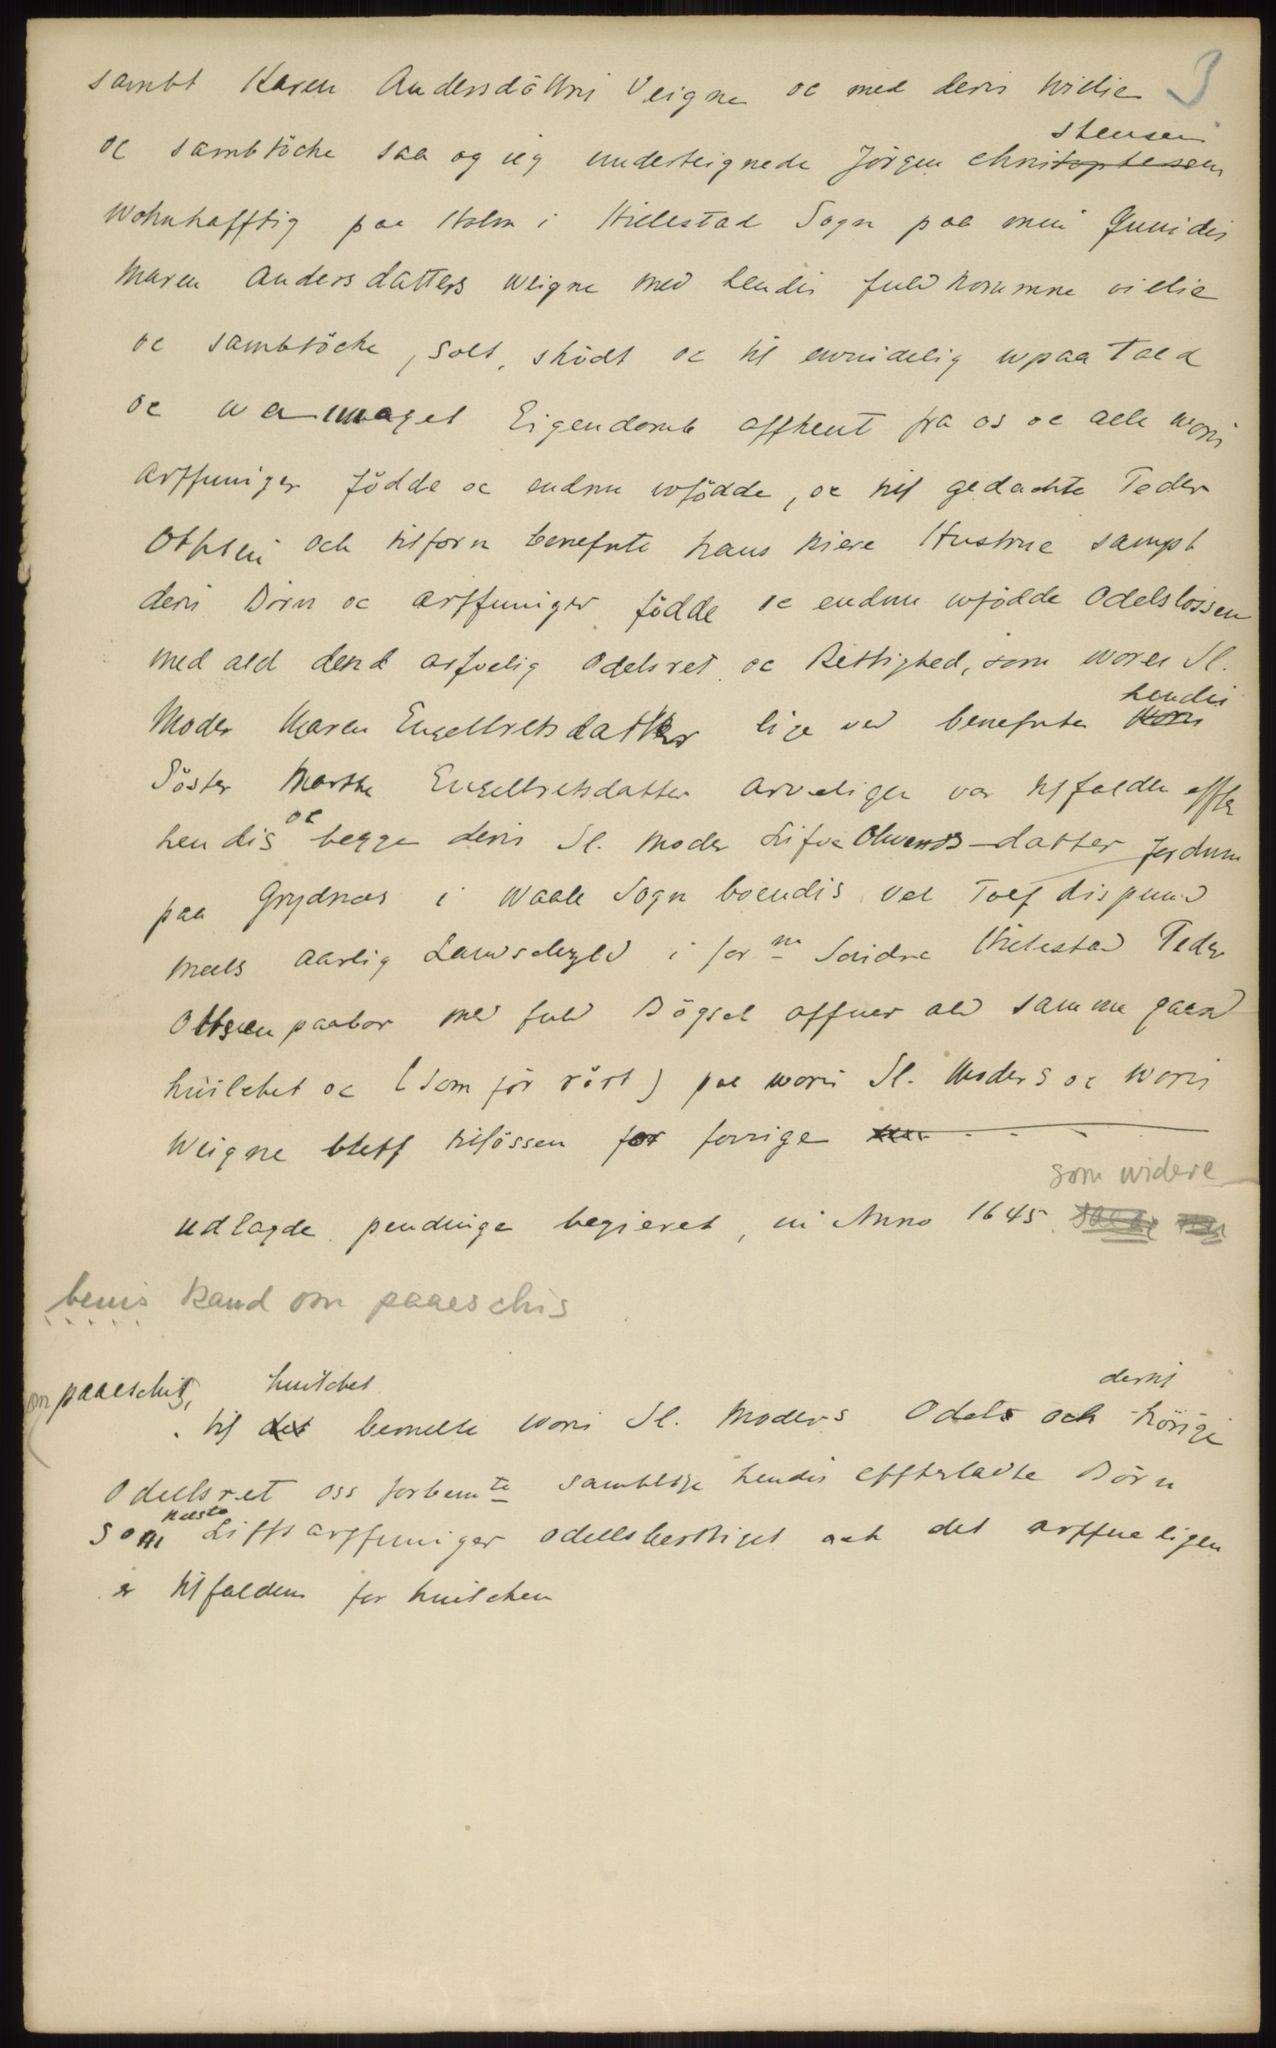 3
sambt Karen Andersdöttris Veigne oc med deris Willie
stensen
oc sambtöcke saa og ieg underteignede Jörgen Christophersen
Wohnhafftig paa Holm i Hillestad Sogn paa min Quindis
Maren Andersdatters Weigne med hendis fuldkommne villie
oc sambtöcke, Solt, skiödt oc til ewindelig wpaatald
oc wanmaget Eigendomb affhent fra os oc alle woris
arffuinger födde oc endnu wfödde, oc til gedachte Peder
Ottsen och tilforn benefnte hans kiere Hustrue sampt
deris Börn oc arffuinger födde oc endnu wfödde Odelslössen
med ald dend arfvelig Odelsret oc Rettighed, som wores Sl.
hendis
Moder Maren Engelbretsdatter lige ved benefnte
Söster Marthe Engelbretsdatter arveligen var tilfalden effter
oc
hendis begge deris Sl. Moder Lifve Oluvers-datter fordum
paa Grydnæs i Waale Sogn boendis vel Tolf Lispund
Meels aarlig Landschyld i forne Söndre Hillestad Peder
Ottsen paabor med fuld Bögsel offuer ald samme gaard
huilchet oc (som för rört) paa woris Sl. Moders oc Woris
Weigne bleff tilössen for forrige
som widere
udlagde pendinge begieret, in Anno 1645
bevis kand om paaeschis
om paaeschis, huilchet dertil
til det bemelte woris Sl. Moders Odels och hörige
Odelsret oss forbemte samblige hendis effterladte Börn
neste
som Liffsarffuinger odellsberttiget och det arffueligen
er tilfalden for huilchen